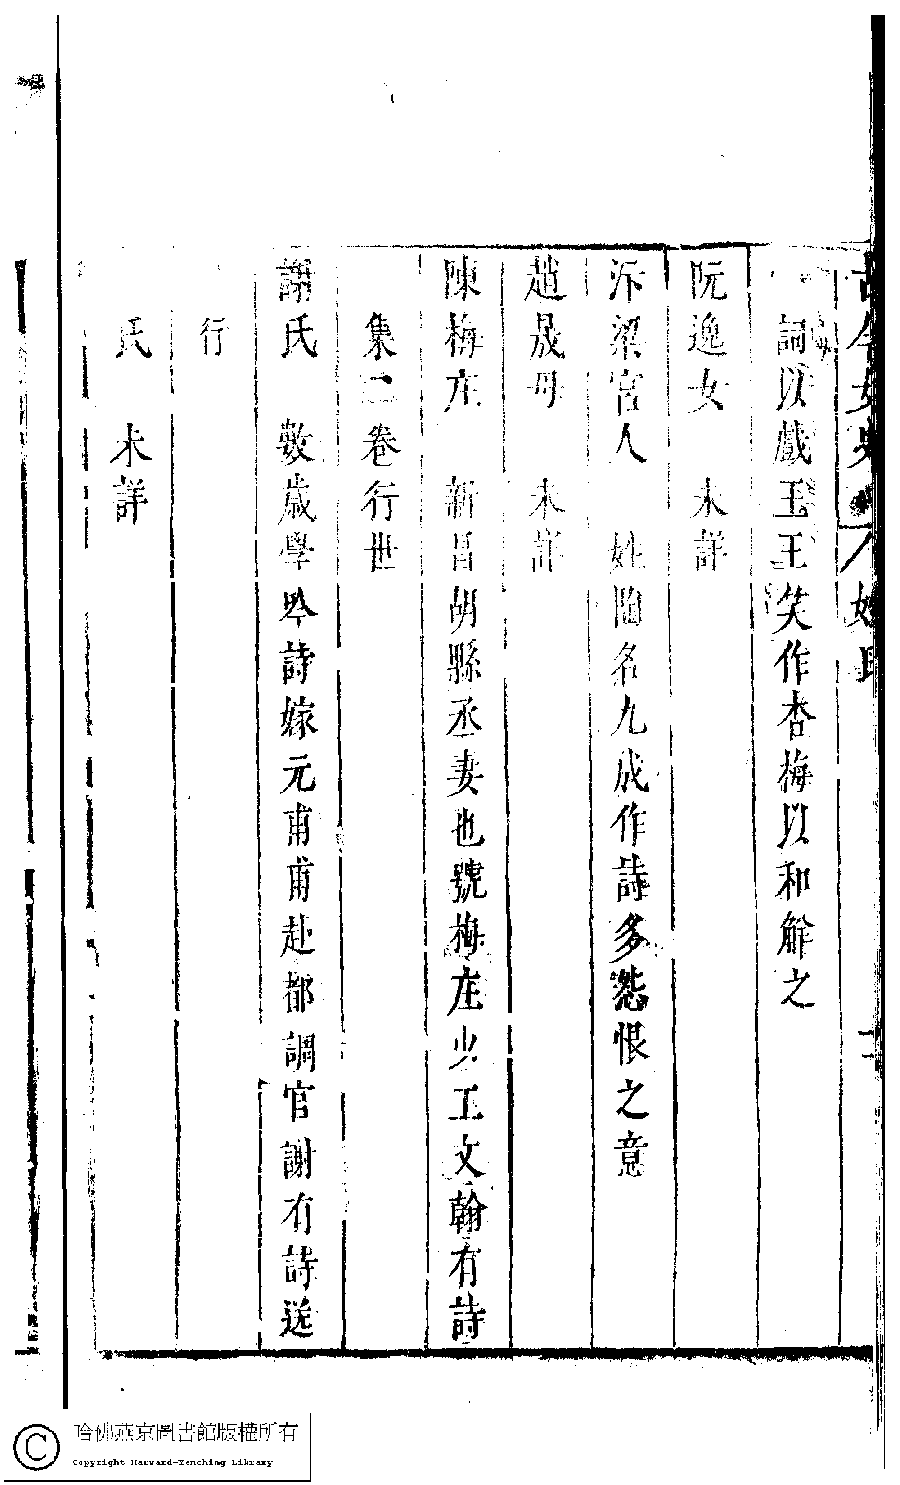 古今女史 姓氏
詞以戲王王笑作杏梅以和解之
阮逸女　未詳
汴梁宮人　姓闕名九成作詩多愁恨之意
趙晟母　未詳
陳梅庄　新昌胡縣丞妻也號梅庄少工文翰有詩
集二卷行世
謝氏　數歲學吟詩嫁元甫甫赴都調官謝有詩送
行
氏　未詳
哈佛燕京圖書館版權所有
Copyright Harvard-Yenching Library